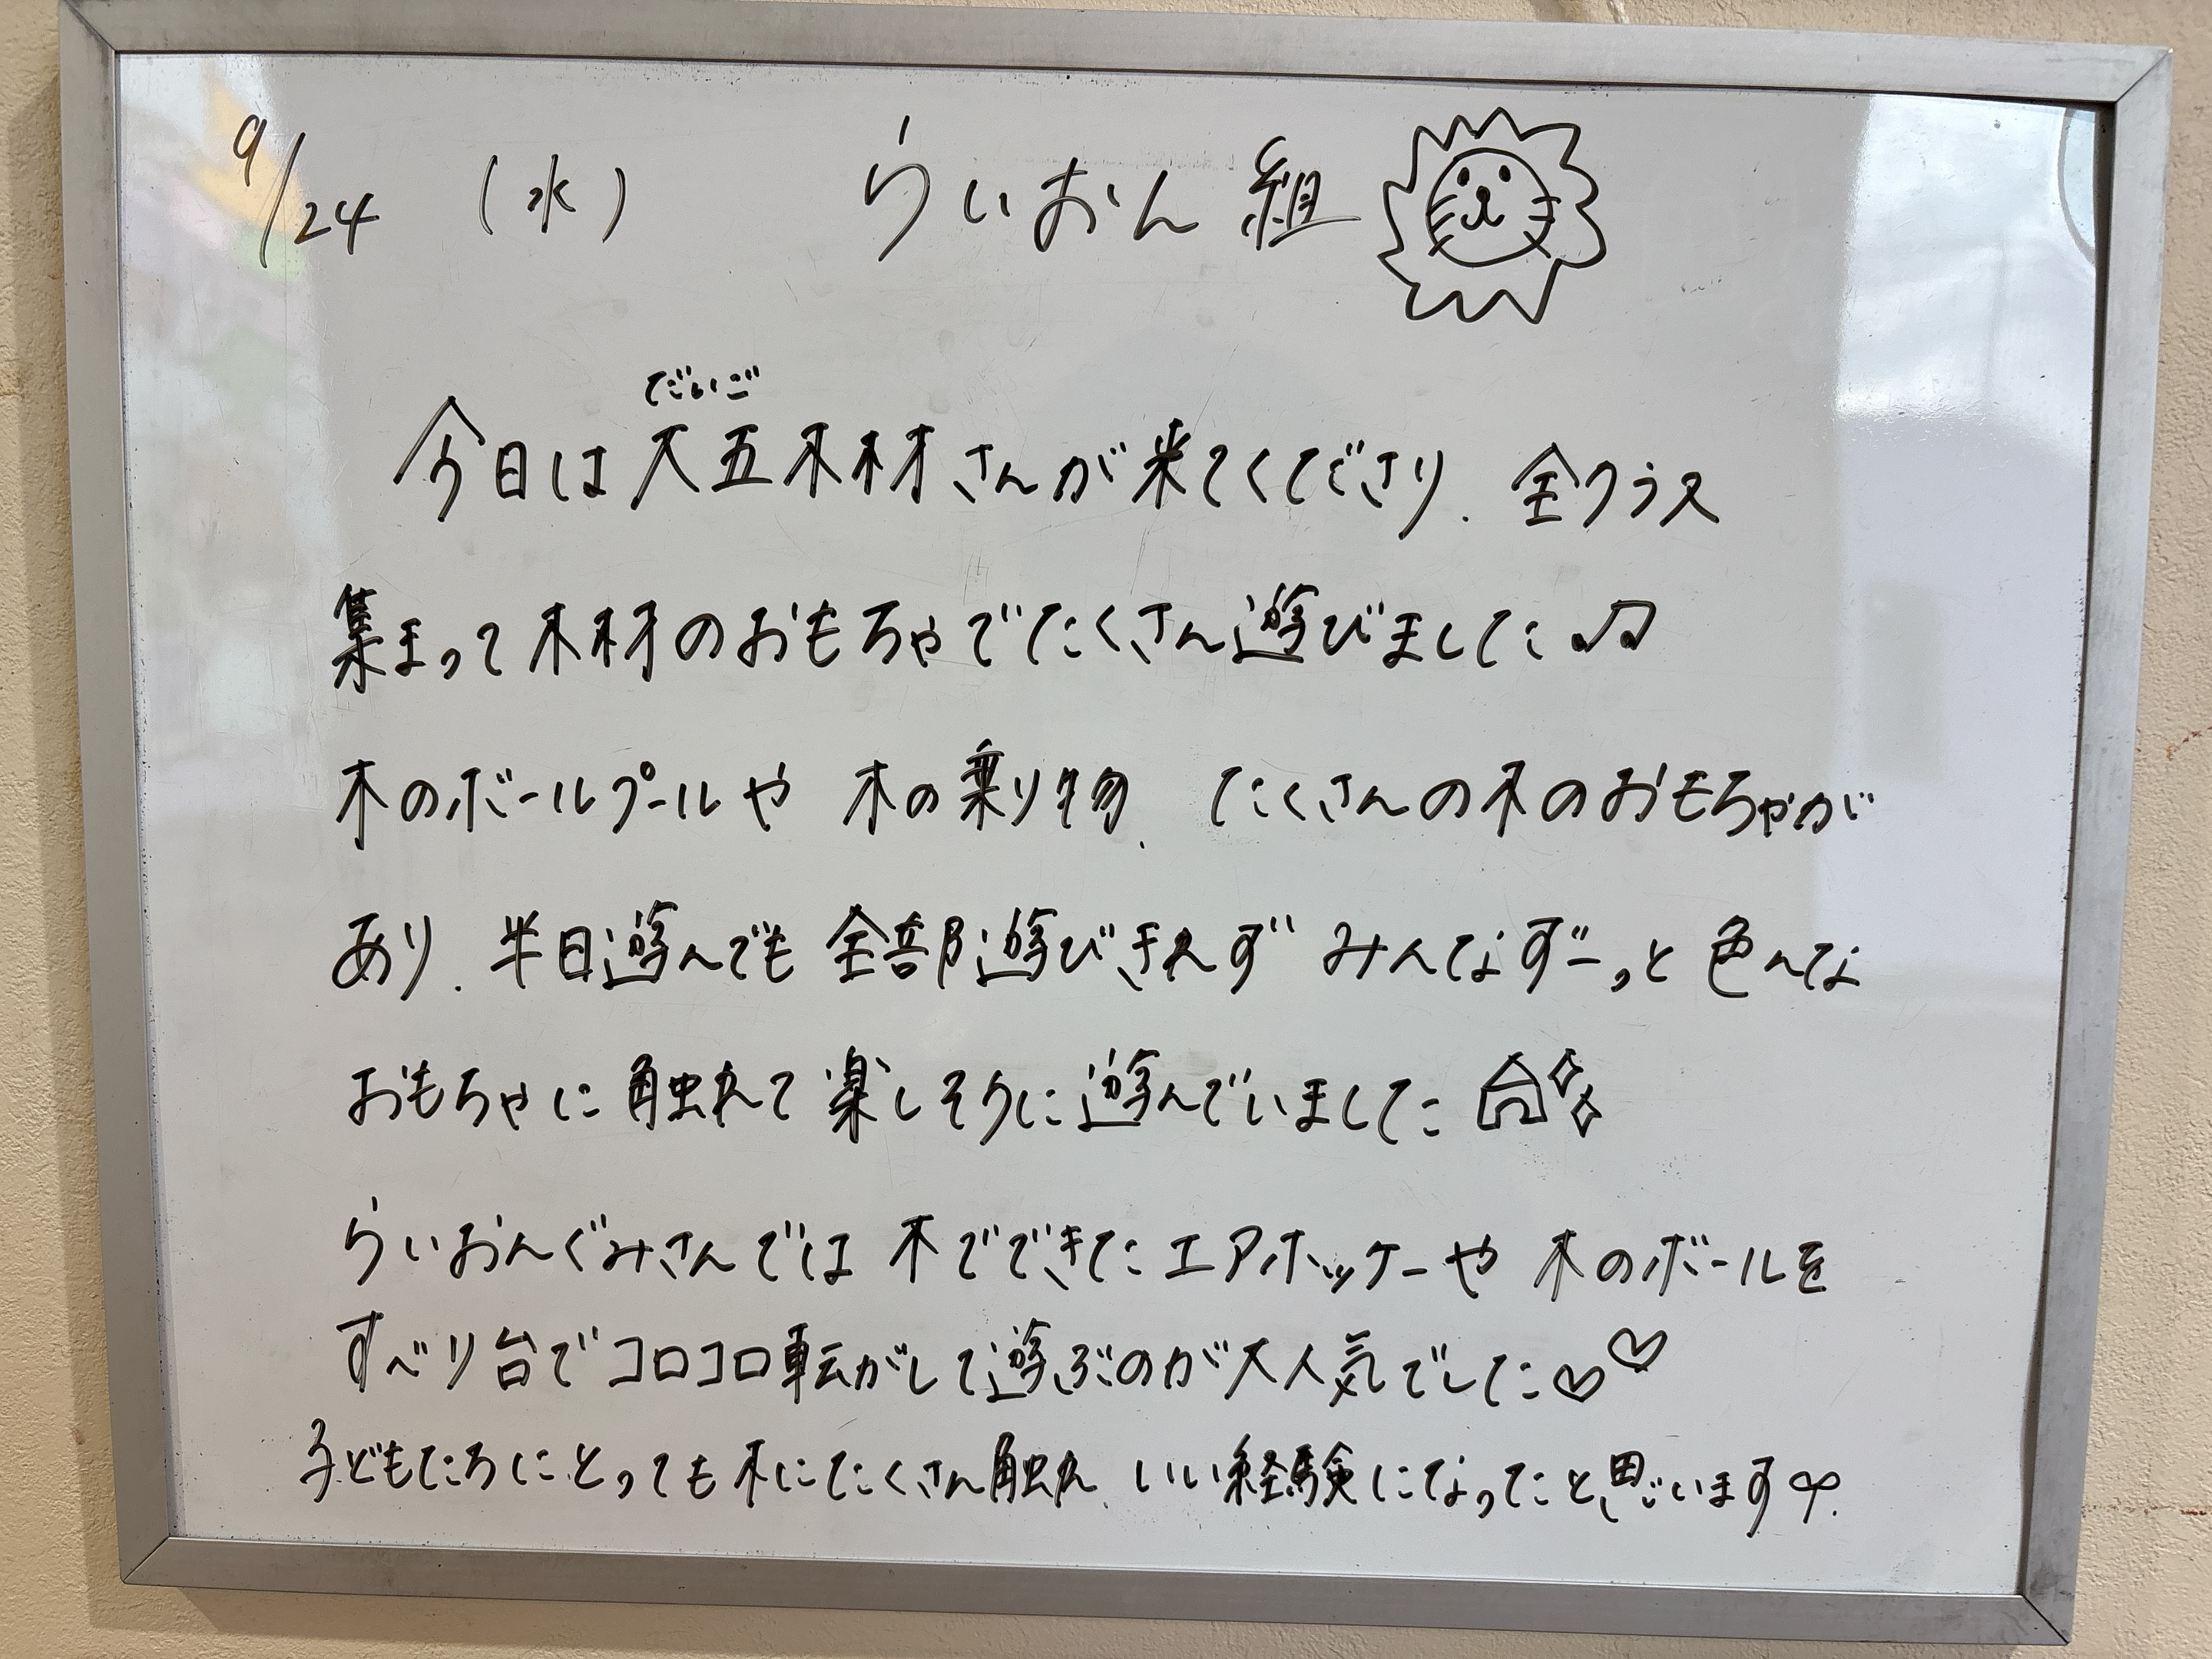 9/24 (水) らいおん組
だいご
今日は大五木材さんが来てくださり、全クラス
集まって木材のおもちゃでたくさん遊びました♫
木のボールプールや 木の乗り物、たくさんの木のおもちゃが
あり、半日遊んでも 全部遊びきれず みんなずーっと 色んな
おもちゃに触れて楽しそうに遊んでいました
らいおんぐみさんでは 木でできたエアホッケーや 木のボールを
すべり台でコロコロ転がして遊ぶのが大人気でした♡♡
子どもたちにとっても木にたくさん触れ、いい経験になったと思います